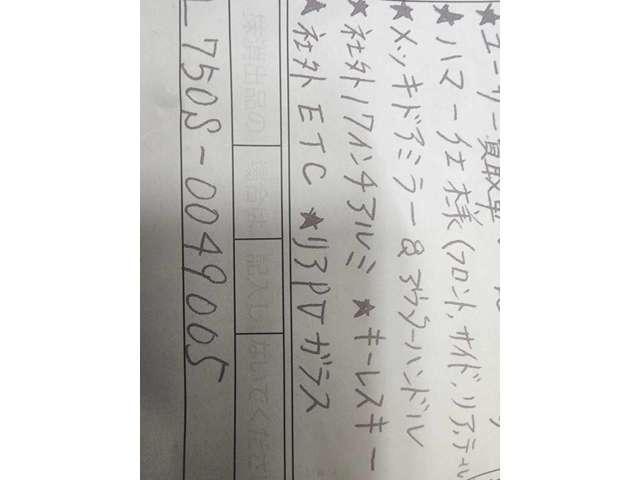 ★ユーザー買取車
★ハマーチェ様(フロント,サイド,リア,テール
★メッキドアミラー&アウターハンドル
★社外17インチアルミ ★キーレスキー
★社外ETC ★リアPVガラス
抹消出品の 場合は 記入し ないでくださ
L750S-0049005